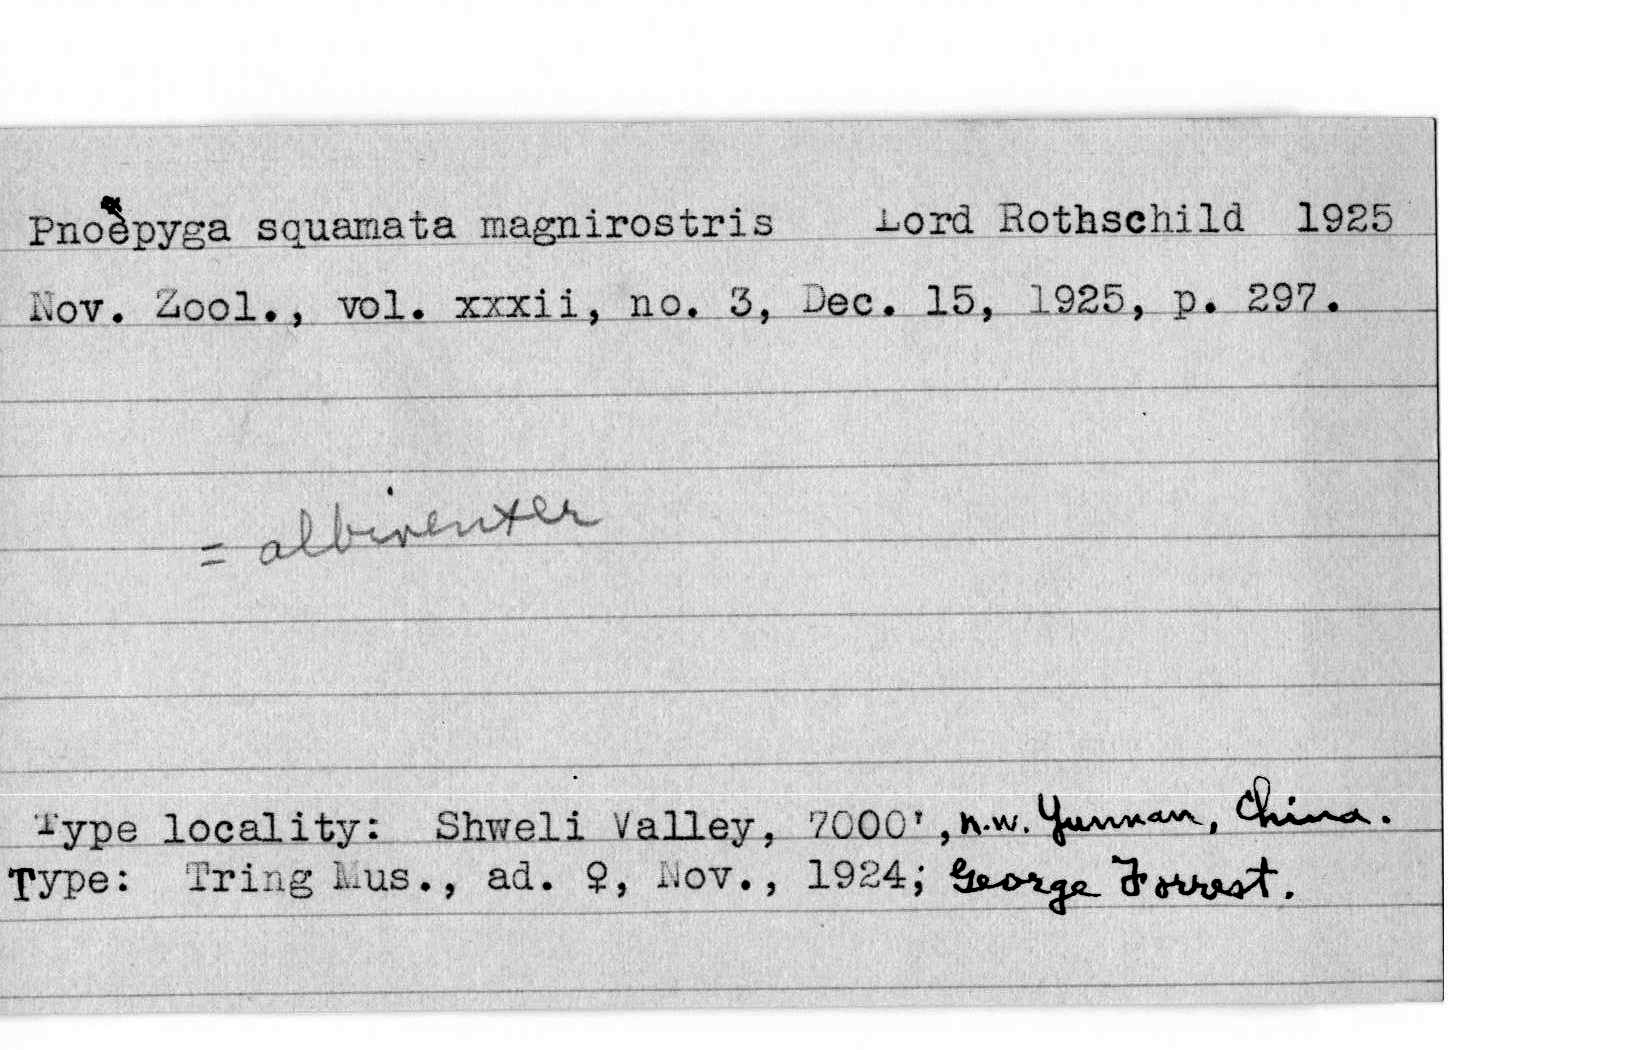 Pnoepyga squamata magnirostris Lord Rothschild 1925
Nov. Zool., vol. xxxii, no. 3, Dec. 15, 1925, p. 297.
= albiventer
Type locality: Shweli Valley, 7000', n.w. Yunnan, China.
Type: Tring Mus., ad. ♀, Nov., 1924; George Forrest.